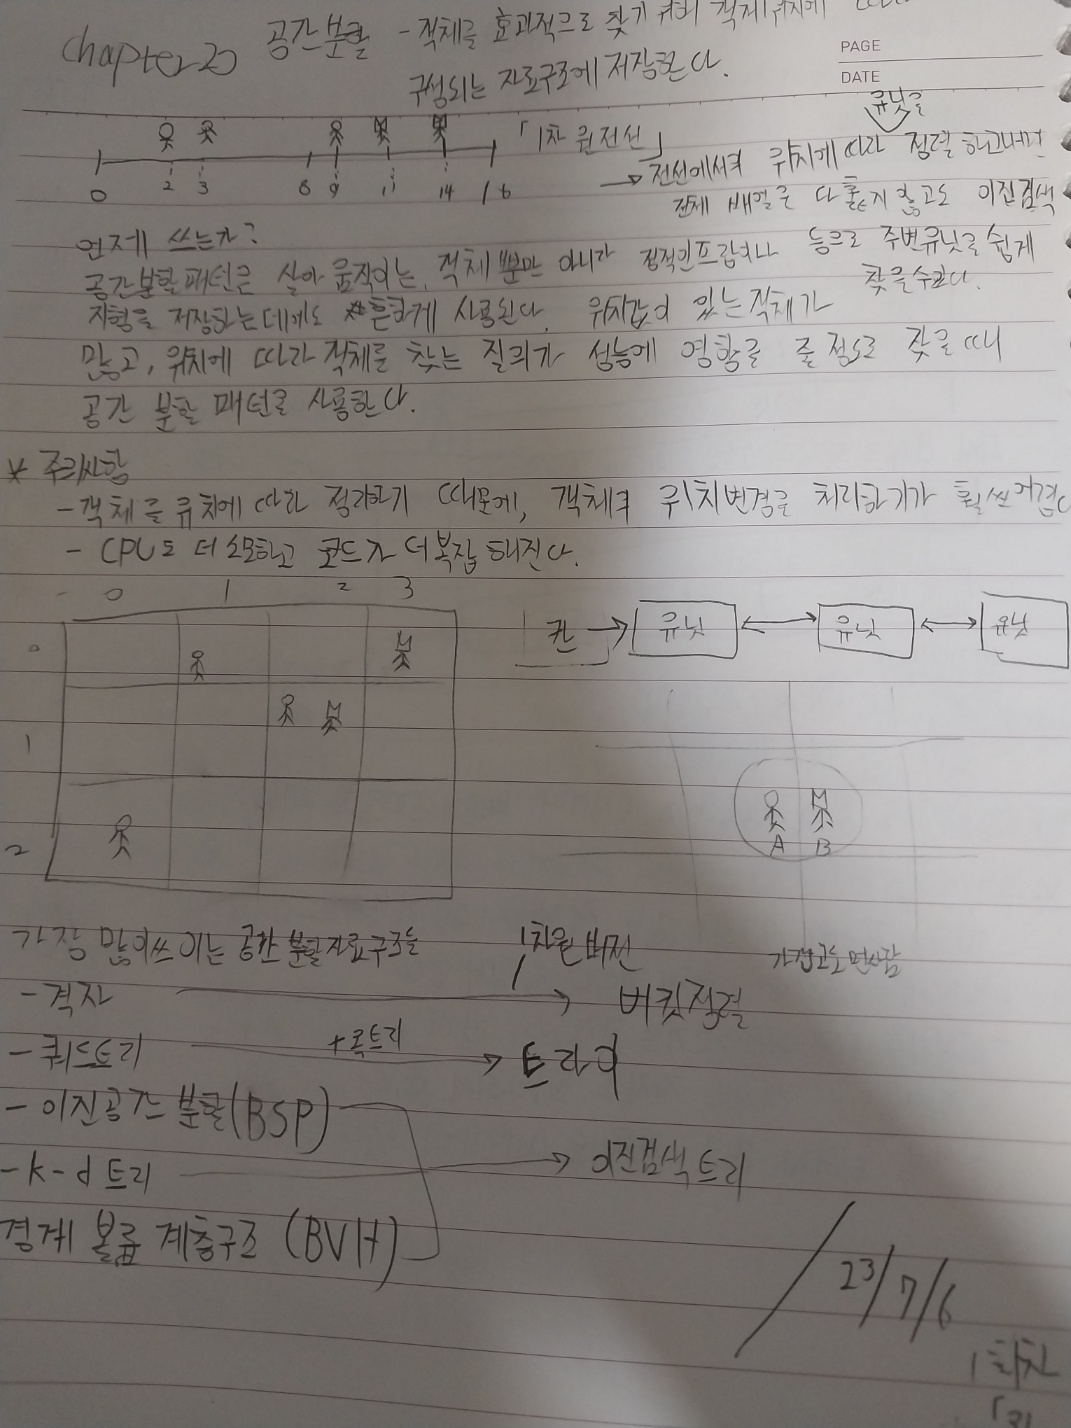 chapter 20 공간분할 - 객체를 효과적으로 찾기 위해 객체 위치에
구성되는 자료구조에 저장한다.
PAGE
DATE
유닛을
「1차원전선」
→ 전선에서 위치에 따라 정렬 하고나면
전체 배열을 다 훑지 않고도 이진검색
등으로 주변유닛을 쉽게
찾을수있다.
0 2 3 8 9 11 14 16
언제 쓰는가?
공간분할패턴은 살아 움직이는, 객체 뿐만 아니라 정적인프랍이나
지형을 저장하는데에도 흔하게 사용된다. 위치값이 있는객체가
많고, 위치에 따라 객체를 찾는 질의가 성능에 영향을 줄 정도로 잦을 때
공간 분할 패턴을 사용한다.
* 주의사항
- 객체를 위치에 따라 정리하기 때문에, 객체의 위치변경을 처리하기가 훨씬 어렵다
- CPU도 더 소모하고 코드가 더 복잡해진다.
0 1 2 3
0
1
2
칸 → 유닛 ↔ 유닛 ↔ 유닛
A B
가장 많이쓰이는 공간 분할자료구조들
- 격자 → 버킷정렬
1차원 버전
- 쿼드트리 → 트라이
+옥트리
- 이진공간 분할(BSP)
- k-d 트리 → 이진검색 트리
경계 볼륨 계층구조 (BVH)
23/7/6